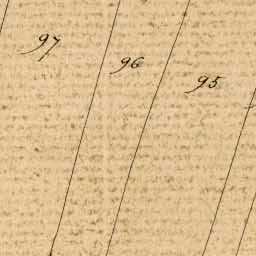 97
96
95